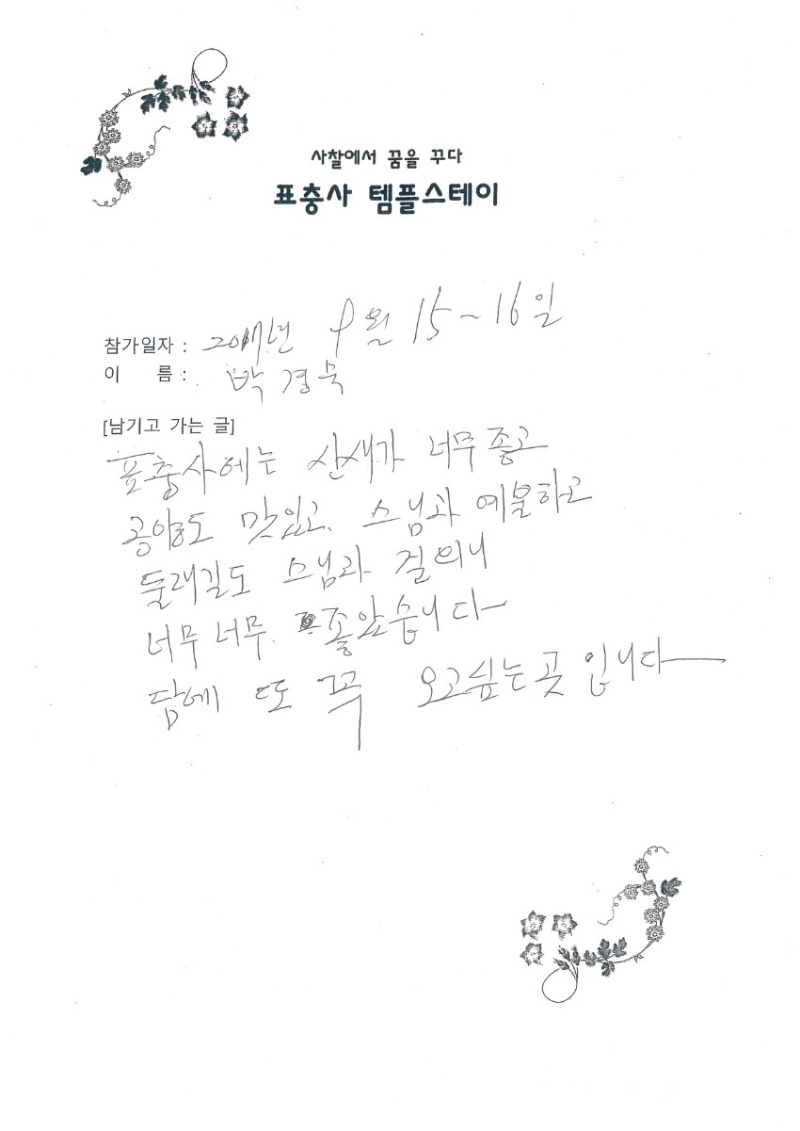 사찰에서 꿈을 꾸다
표충사 템플스테이
참가일자 : 2017년 9월 15~16일
이 름 : 박경묵
[남기고 가는 글]
표충사에는 산새가 너무 좋고
공양도 맛있고, 스님과 예불하고
둘래길도 스님과 걸의니
너무 너무. 좋았습니다
담에 또 꼭 오고싶는곳 입니다